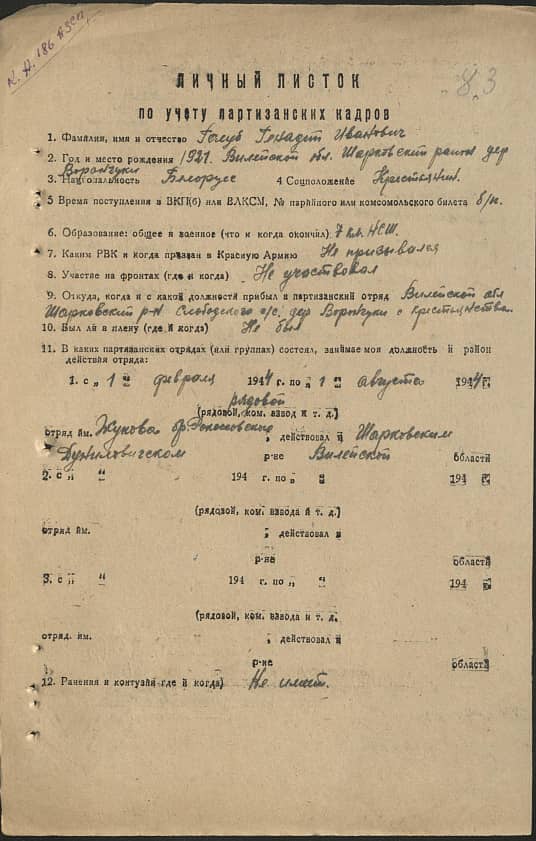 К. Н. 186
83
ЛИЧНЫЙ ЛИСТОК
по учету партизанских кадров
1. Фамилия, имя и отчество Голуб Генадий Иванович
2. Год и место рождения 1921. Вилейской обл. Шарковский район дер
Ворончуки
3. Национальность Белорусс 4 Соцположение Крестьянин.
5 Время поступления в ВКП(б) или ВЛКСМ, № партийного или комсомольского билета б/п.
6. Образование: общее и военное (что и когда окончил) 7 кл. НСШ.
7. Каким РВК и когда призван в Красную Армию Не призывался
8. Участие на фронтах (где и когда) Не участвовал
9. Откуда, когда и с какой должности прибыл в партизанский отряд Вилейской обл
Шарковский р-н Слободского с/с. дер Ворончуки с крестьянства.
10. Был ли в плену (где и когда) Не был
11. В каких партизанских отрядах (или группах) состоял, занимаемая должность и район
действия отряда:
1. с „ 1 “ февраля 1944 г. по „ 1 “ августа 1944 г.
рядовой
(рядовой, ком. взвод и т. д.)
отряд им. Жукова бр. Рокоссовского, действовал в Шарковским
Дуниловичском р-не Вилейской области
2. с „ “ 194 г. по „ “ 194 г.
(рядовой, ком. взвода и т. д.)
отряд им. , действовал в
р-не области
3. с „ “ 194 г. по „ “ 194 г.
(рядовой, ком. взвода и т. д.
отряд. им. , действовал в
р-не области
12. Ранения и контузии где и когда) Не имеет.